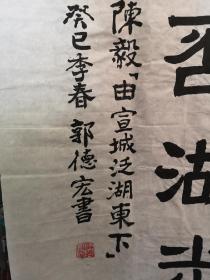 湖
陳毅「由宣城泛湖東下」
癸巳季春 郭德宏書